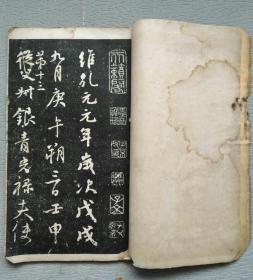 維乾元元年歲次戊戌
九月庚午朔三日壬申
第十三
從父叔銀青光祿夫使